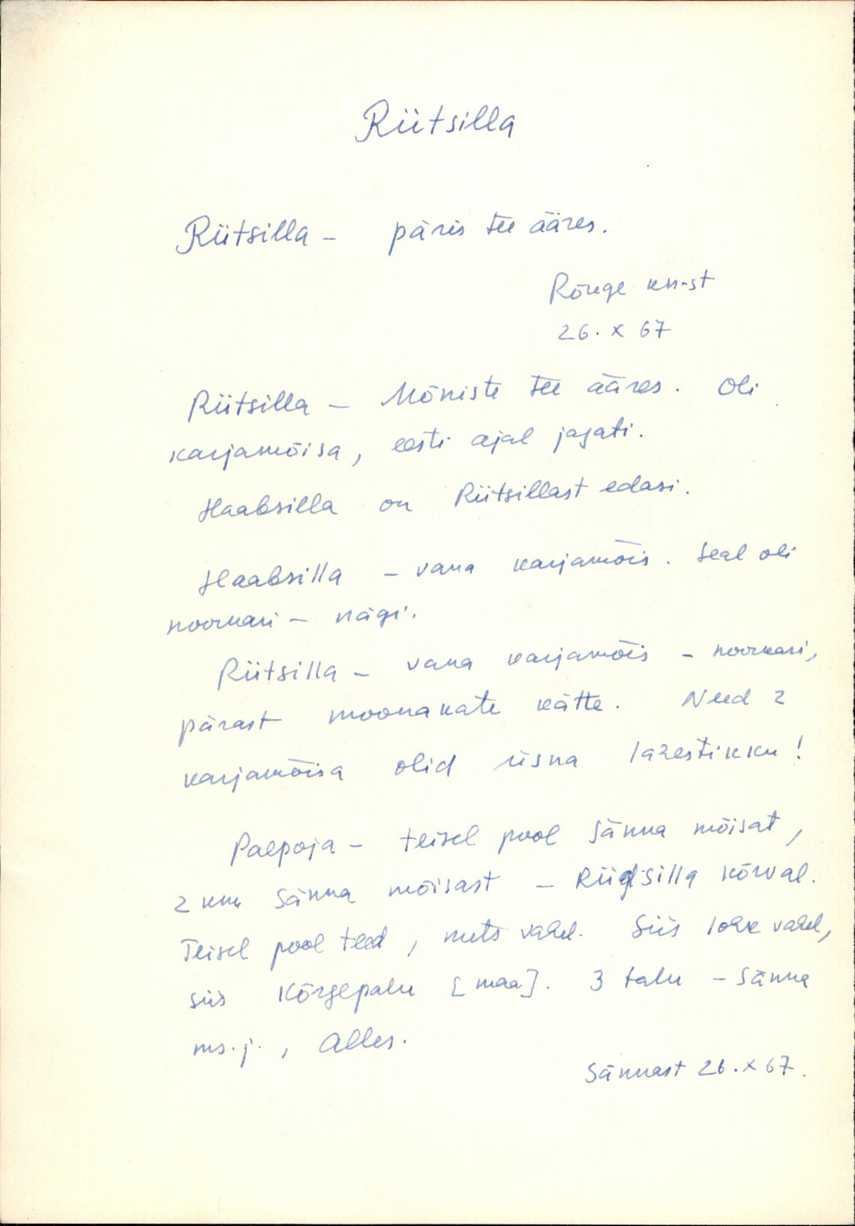 Riitsilla
Riitsilla – päris tee ääres.
Rõuge kn-st
26. X 67
Riitsilla – Mõniste tee ääres. Oli
karjamõisa, eesti ajal jagati.
Haabsilla on Riitsillast edasi.
Haabsilla – vana karjamõis. Seal oli
noorkari – nägi.
Riitsilla – vana karjamõis – noorkari,
pärast moonakate kätte. Need 2
karjamõisa olid üsna lähestikku!
Paepoja – teisel pool Sänna mõisat,
2 km Sänna mõisast – Riidsilla kõrval.
Teisel pool teed, mets vahel. Siis vahel,
siis Kõrgepalu [maa]. 3 talu – Sänna
ms. j., Alles.
Sännast 26. X 67.